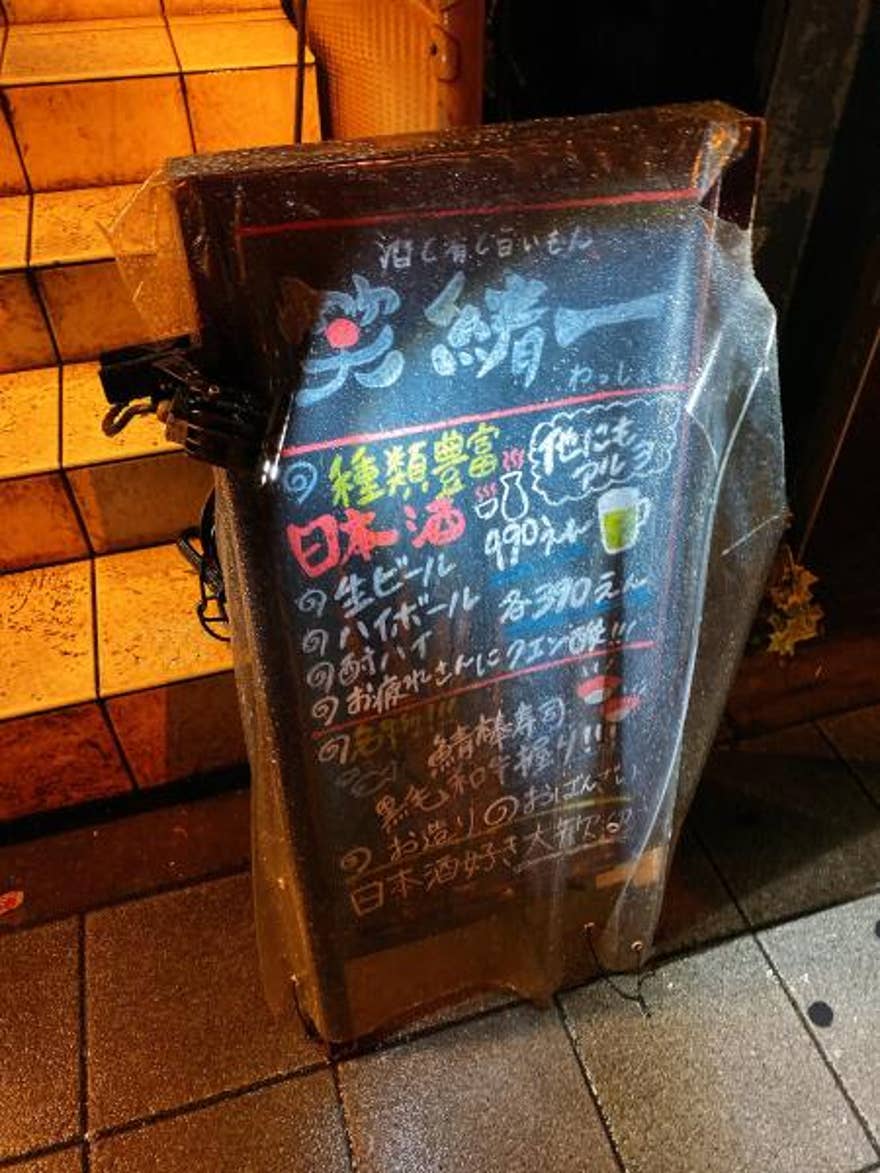 酒と肴と旨いもん
笑 鯖一
わっしょい
種類豊富
他にも
アルヨ
日本酒
990えん
生ビール
ハイボール
各390えん
酎ハイ
お疲れさんにクエン酸!!!
名物!!!
鯖棒寿司
黒毛和牛握り!!!
お造り おばんざい
日本酒好き大歓迎